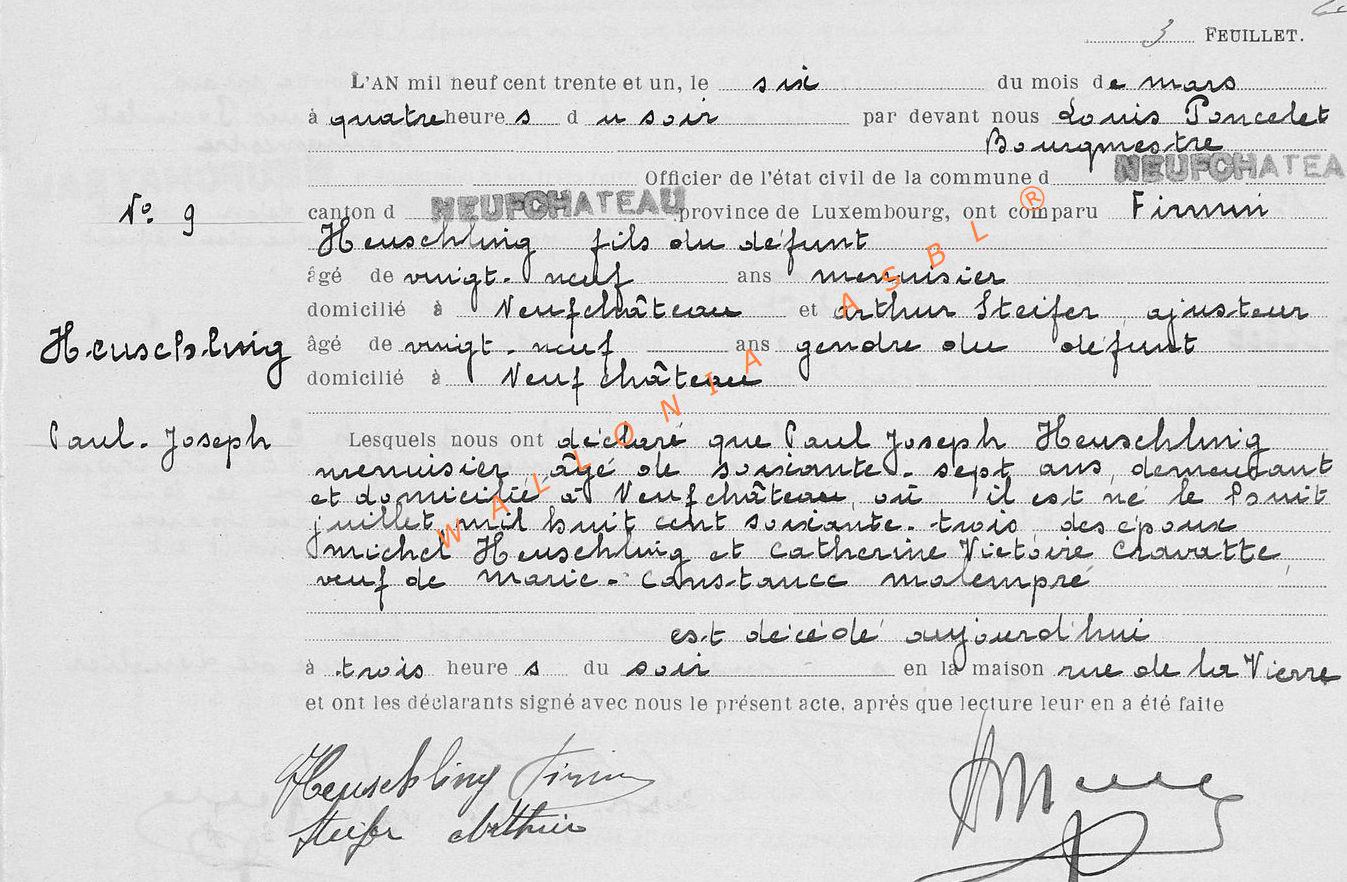 3 FEUILLET.
L'AN mil neuf cent trente et un, le six du mois de mars
à quatre heures du soir par devant nous Louis Poncelet
Bourgmestre
Officier de l'état civil de la commune d NEUFCHATEA
No 9
canton d NEUFCHATEAU province de Luxembourg, ont comparu Firmin
Heuschling fils du défunt
âgé de vingt-neuf ans menuisier
domicilié à Neufchâteau et arthur Steifer, ajusteur
Heuschling
âgé de vingt-neuf ans gendre du défunt
domicilié à Neufchâteau
Paul-Joseph
Lesquels nous ont déclaré que Paul Joseph Heuschling
menuisier, âgé de soixante-sept ans, demeurant
et domicilié à Neufchâteau, où il est né le huit
juillet mil huit cent soixante-trois des époux
Michel Heuschling et Catherine Victoire Cravatte,
veuf de Marie-Constance Malempré
est décédé aujourd'hui
à trois heures du soir en la maison rue de la Vierre
et ont les déclarants signé avec nous le présent acte, après que lecture leur en a été faite
Heuschling Firmin
Steifer Arthur
WALLONIA ASBL ®